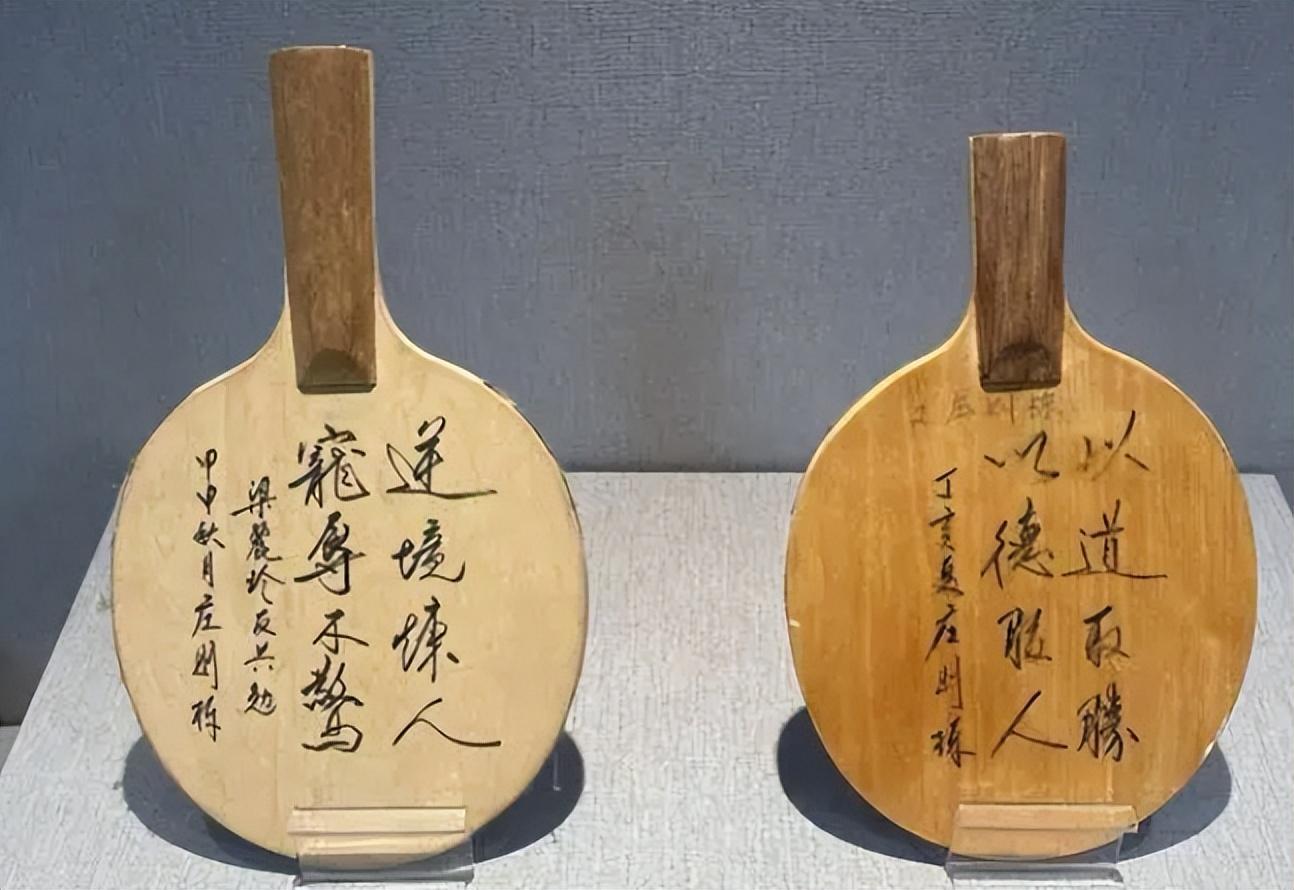 逆境煉人
寵辱不驚
梁麗珍友共勉
甲申秋月庄则栋
以道取勝
以德服人
丁亥夏庄则栋